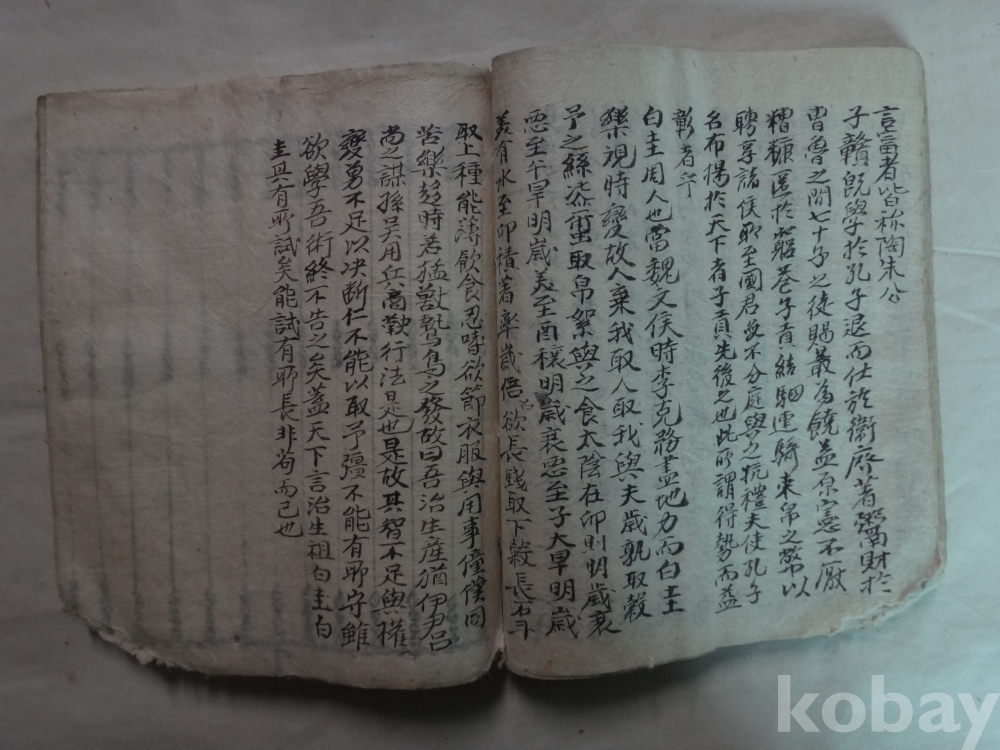 言富者皆称陶朱公
子贛旣學於孔子退而仕於衛廢著鬻財於
曺魯之間七十子之徒賜最為饒益原憲不厭
糟糠匿於窮巷子貢結駟連騎束帛之幣以
聘享諸侯所至國君無不分庭與之抗禮夫使孔子
名布揚於天下者子貢先後之也此所謂得勢而益
彰者乎
白圭用人也當魏文侯時李克務盡地力而白圭
樂視時變故人棄我取人取我與夫歲孰取穀
予之絲漆蠒取帛絮與之食太陰在卯則明歲衰
惡至午旱明歲美至酉穰明歲衰惡至子大旱明歲
美有水至卯積著率歲倍欲長錢取下穀長石斗
取上種能薄飮食忍嗜欲節衣服與用事僮僕同
苦樂趍時若猛獸鷙鳥之發故曰吾治生産猶伊尹呂
尚之謀孫吳用兵商鞅行法是也是故其智不足與權
變勇不足以決斷仁不能以取予彊不能有所守雖
欲學吾術終不告之矣盖天下言治生祖白圭白
圭其有所試矣能試有所長非苟而已也
kobay